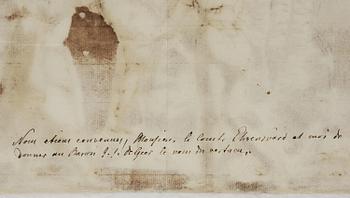 Nous etions convenus, Monsieur le Comte Ehrensvärd et moi de
donner au Baron De Geer le nom du vertueu